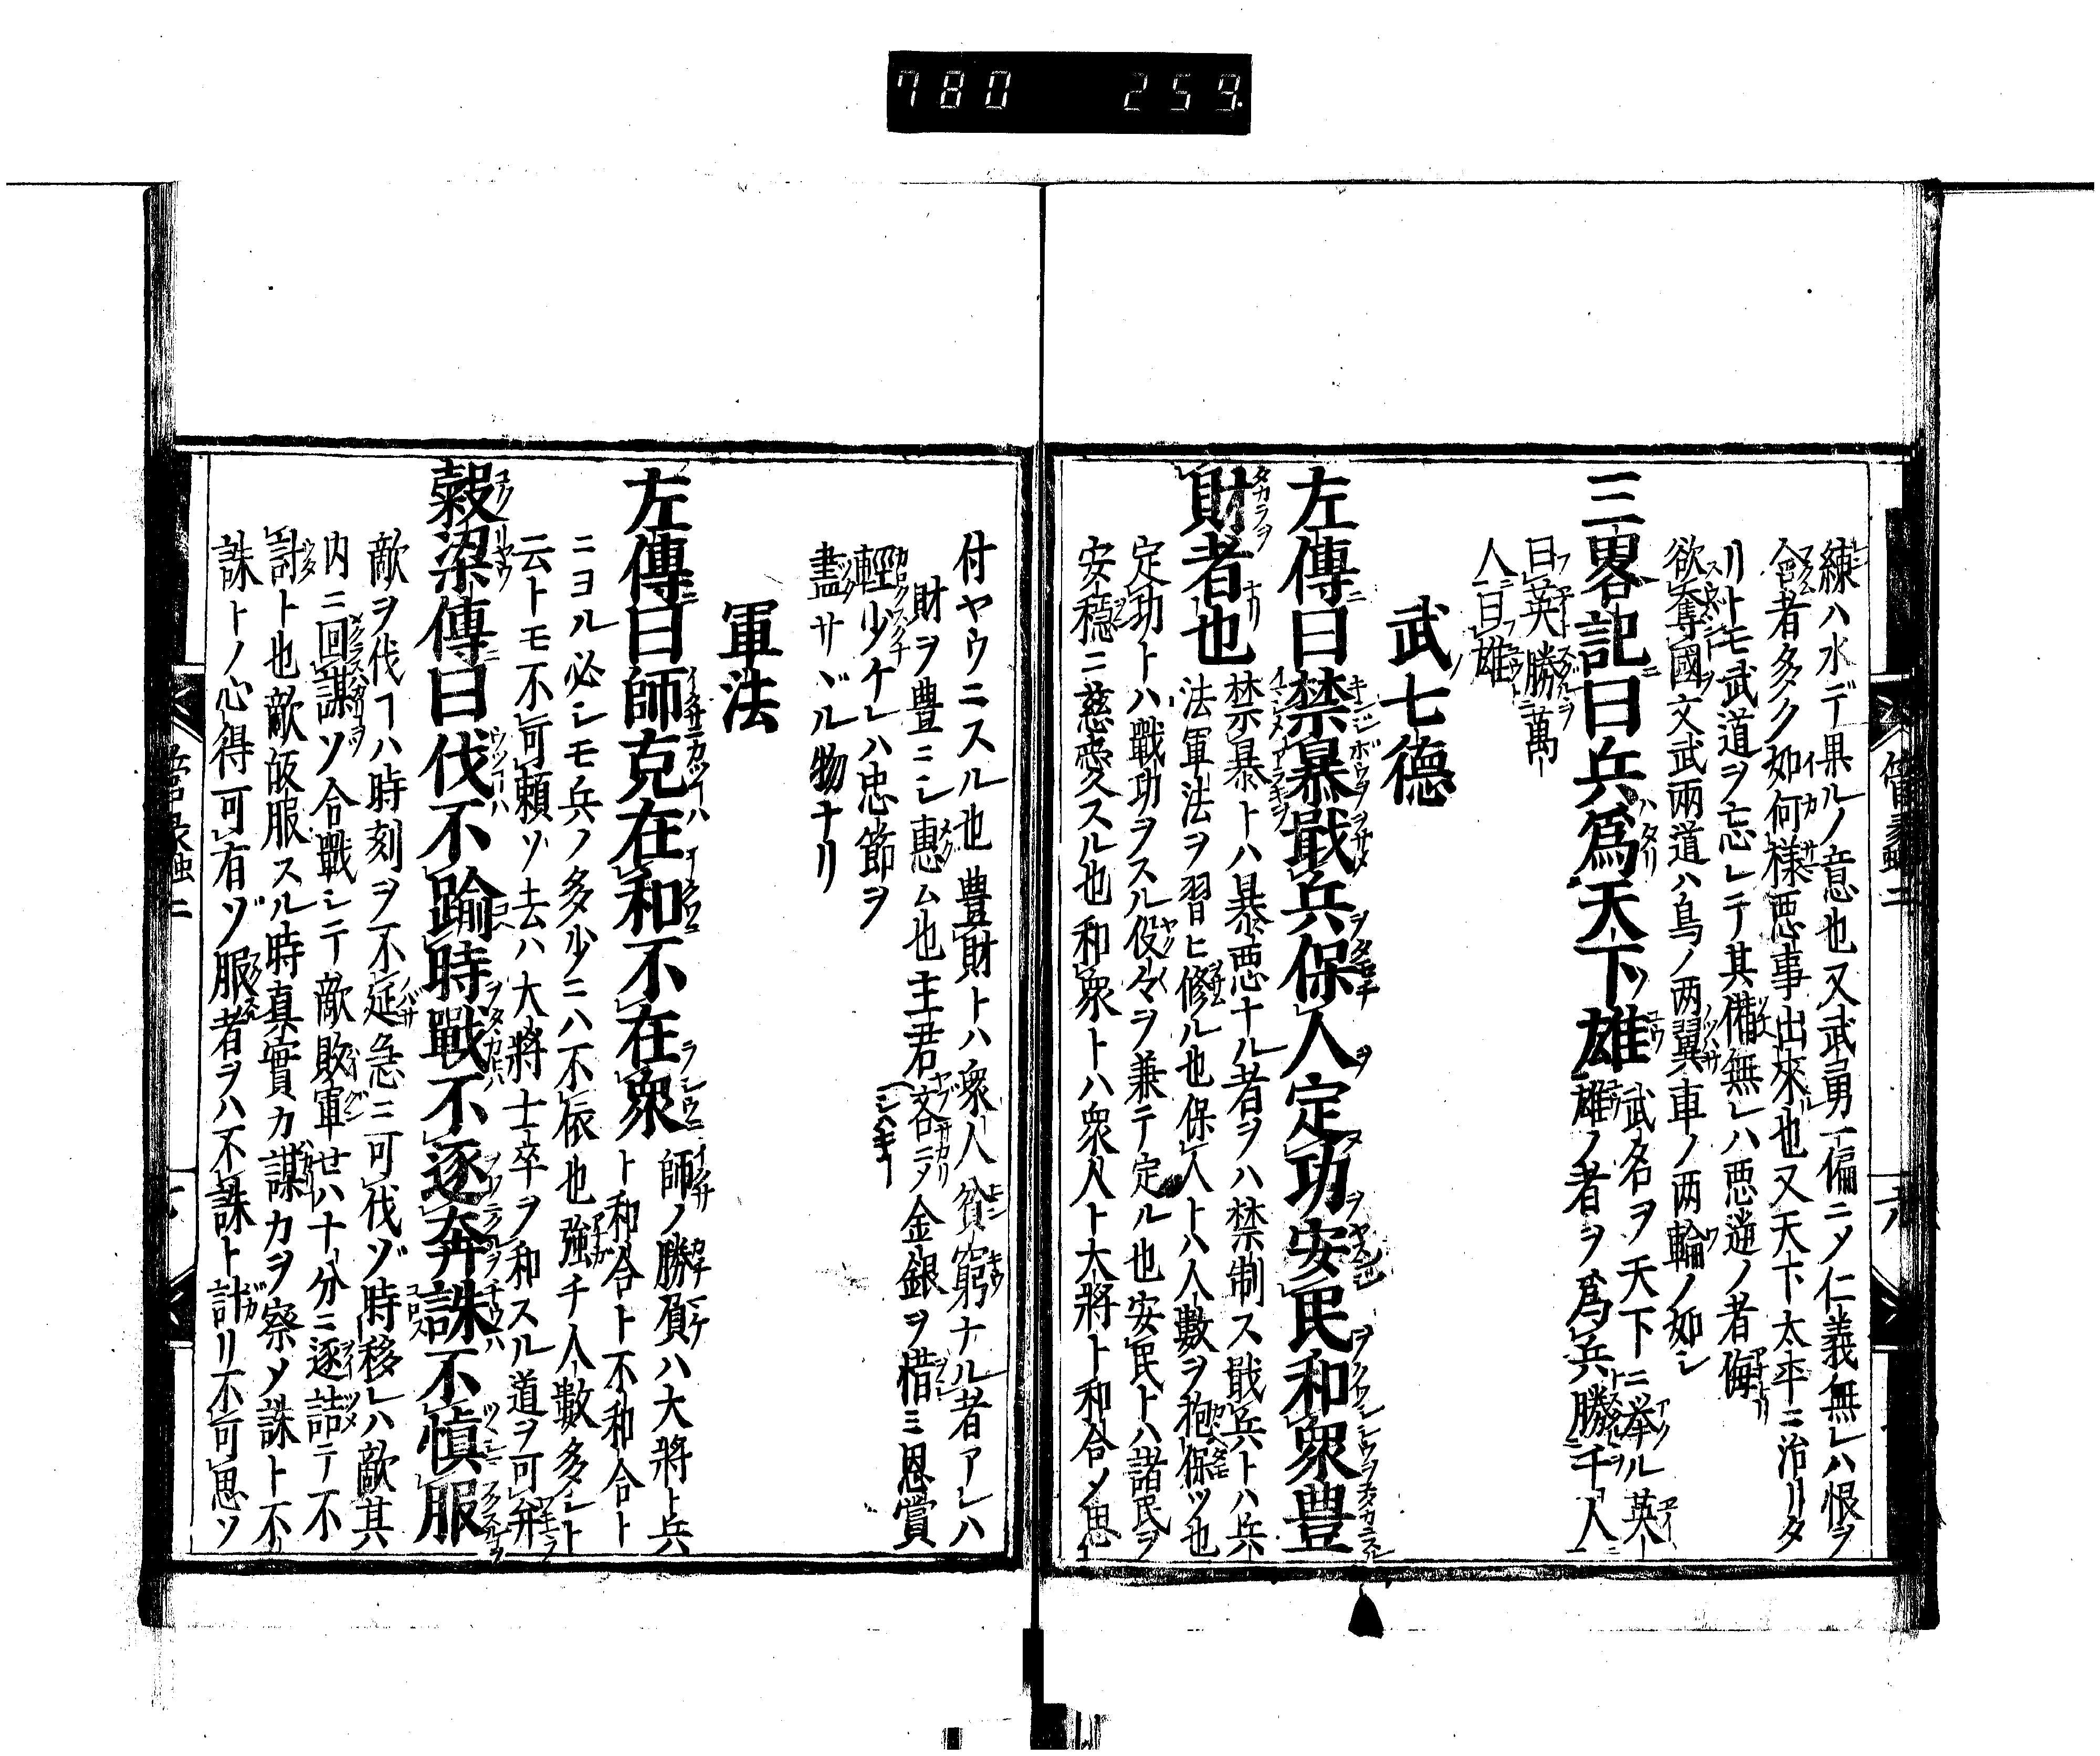 780 259
練ハ水デ果ルノ意也又武勇一偏ニメ仁義無レハ恨ヲ
含者多ク如何様悪事出來也又天下太平ニ治リタ
リトモ武道ヲ忘レテ其備無レハ悪逆ノ者侮
欲奪國文武兩道ハ鳥ノ两翼車ノ两輪ノ如シ
三畧記曰兵爲天下雄
武名ヲ天下ニ挙ル英
雄ノ者ヲ爲兵勝千人
曰英勝萬
人曰雄
武七德
左傳曰禁暴戢兵保人定功安民和衆豊
財者也
禁暴トハ暴悪ナル者ヲハ禁制ス戢兵トハ兵
法軍法ヲ習ヒ修ル也保人トハ人數ヲ抱保ツ也
定功トハ戰功ヲスル役々ヲ兼テ定ル也安民トハ諸民ヲ
安穏ニ慈愛スル也和衆トハ衆人ト大將ト和合メ思
付ヤウニスル也豊財トハ衆人貧窮ナル者アレハ
財ヲ豊ミシ惠ム也主君吝ニメ金銀ヲ惜ミ恩賞
輕少ケレハ忠節ヲ
盡サヾル物ナリ
軍法
左傳曰師克在和不在衆
師ノ勝負ハ大將ト兵
ト和合ト不和合ト
ニヨル必シモ兵ノ多少ニハ不依也強チ人數多シト
云トモ不可頼ツ去ハ大將士卒ヲ和スル道ヲ可弁
穀梁傳曰伐不踰時戰不逐奔誅不愼服
敵ヲ伐ヿハ時刻ヲ不延急ニ可伐ゾ時移レハ敵其
内ニ回謀ソ合戰シテ敵敗軍セハ十分ニ逐詰テ不
討ト也敵皈服スル時真實カ謀カヲ察メ誅ト不
誅トノ心得可有ゾ服者ヲハ不誅ト計リ不可思ソ